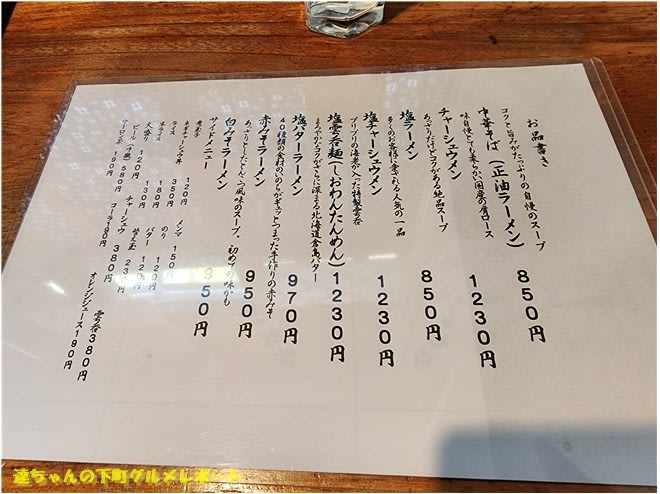 お品書き
コクと旨みがたっぷりの自慢のスープ
中華そば(正油ラーメン) 850円
味自慢とても柔らかい国産の肩ロース
チャーシュウメン 1230円
あっさりだけどコクがある絶品スープ
塩ラーメン 850円
多くのお客様に愛される人気の一品
塩チャーシュウメン 1230円
プリプリの海老が入った特製雲呑
塩雲呑麺(しおわんたんめん) 1230円
まろやかなコクがさらに深まる北海道倉島バター
塩バターラーメン 970円
40種類の食材のいのちがギュッとつまった手作りの赤みそ
赤みそラーメン 950円
あっさりとしたとんこつ風味のスープ。初めての味かも
白みそラーメン 950円
サイドメニュー
煮玉子 120円 メンマ 150円
ネギチャーシュウ丼 350円 のり 120円
ライス 180円 バター 120円
半ライス 130円 替え玉 230円
大盛り 120円 チャーシュウ 380円 雲呑 380円
ビール(中瓶) 580円 コーラ 190円 オレンジジュース 190円
ウーロン茶 190円
達ちゃんの下町グルメレポート